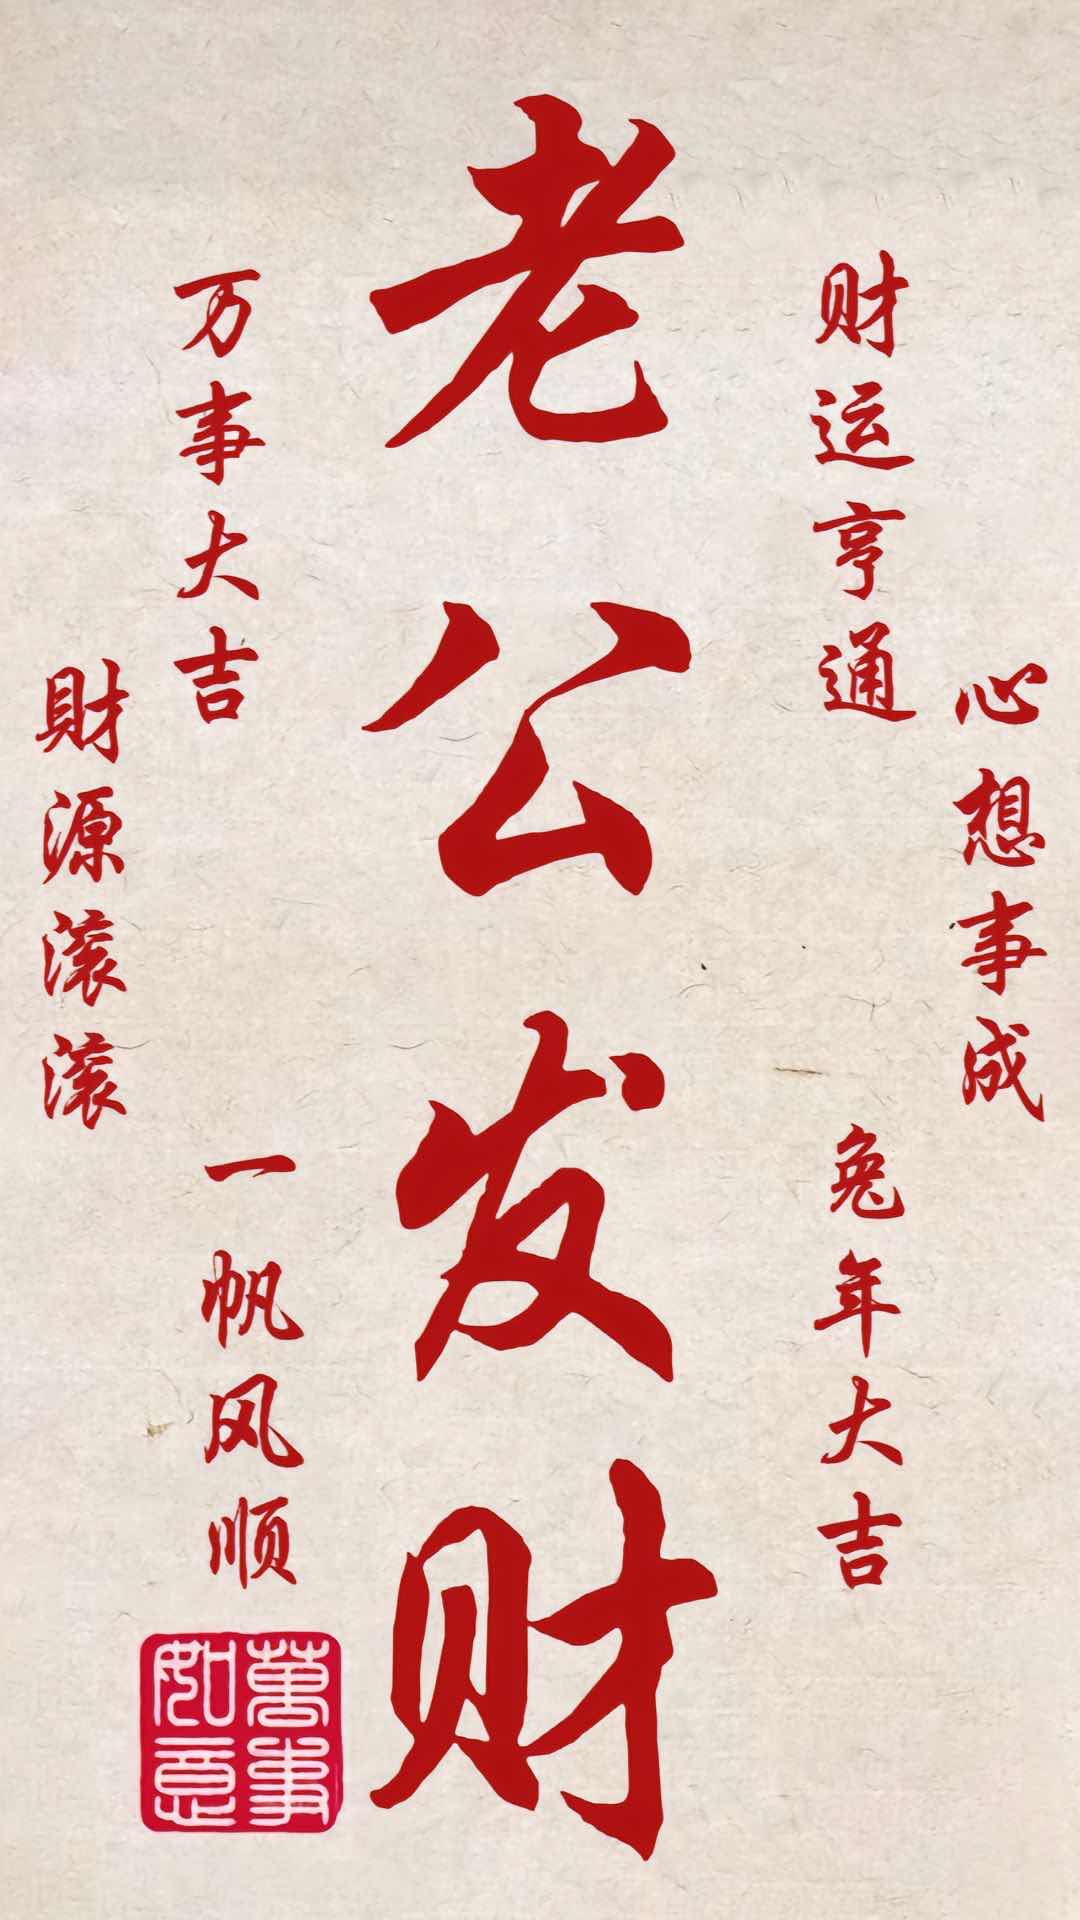 老公发财
财运亨通
心想事成
兔年大吉
万事大吉
財源滚滚
一帆风顺
萬事如意